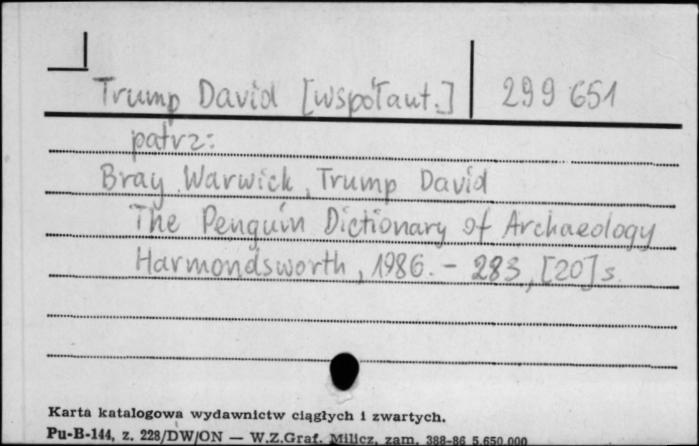 Trump David [współaut.] 299 651
patrz:
Bray Warwick, Trump David
The Penguin Dictionary of Archaeology
Harmondsworth, 1986. – 283, [20] s.
Karta katalogowa wydawnictw ciągłych i zwartych.
Pu-B-144, z. 228/DW/ON — W.Z.Graf. Milicz, zam. 388-86 5.650.000